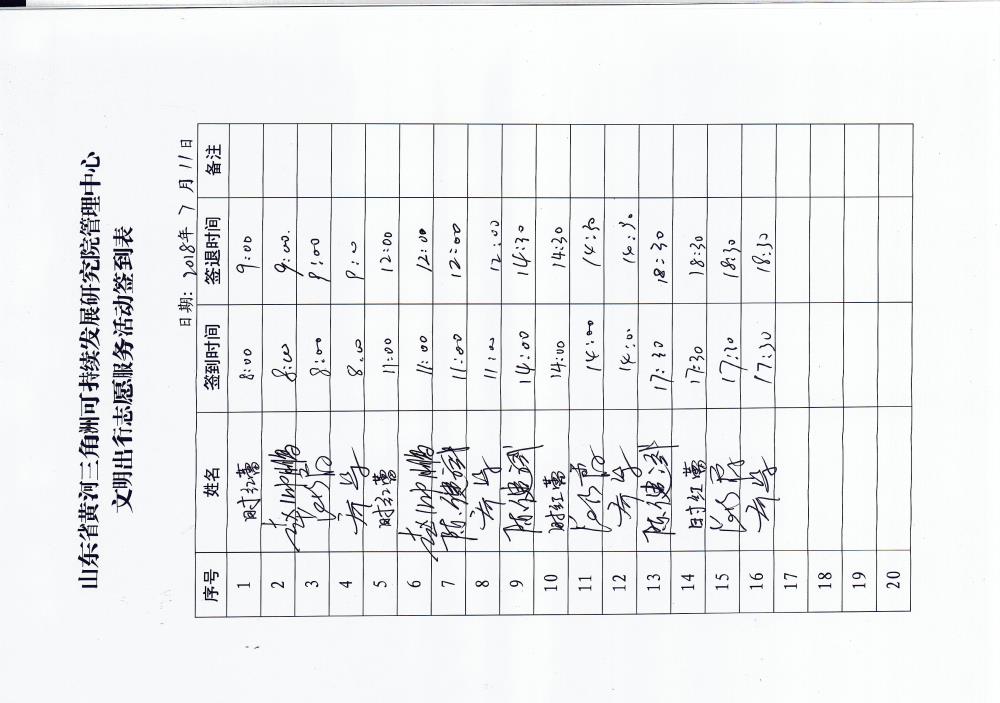 山东省黄河三角洲可持续发展研究院管理中心
文明出行志愿服务活动签到表
日期：2018年7月11日
序号 姓名 签到时间 签退时间 备注
1 时红萬 8:00 9:00
2 赵坤鹏 8:00 9:00.
3 8:00 9:00
4 8:00 9:00
5 时红萬 11:00 12:00
6 赵坤鹏 11:00 12:00
7 陈健斌 11:00 12:00
8 11:00 12:00
9 陈健斌 14:00 14:30
10 时红萬 14:00 14:30
11 14:00 14:30
12 14:00 14:30
13 陈健斌 17:30 18:30
14 时红萬 17:30 18:30
15 17:30 18:30
16 17:30 18:30
17
18
19
20